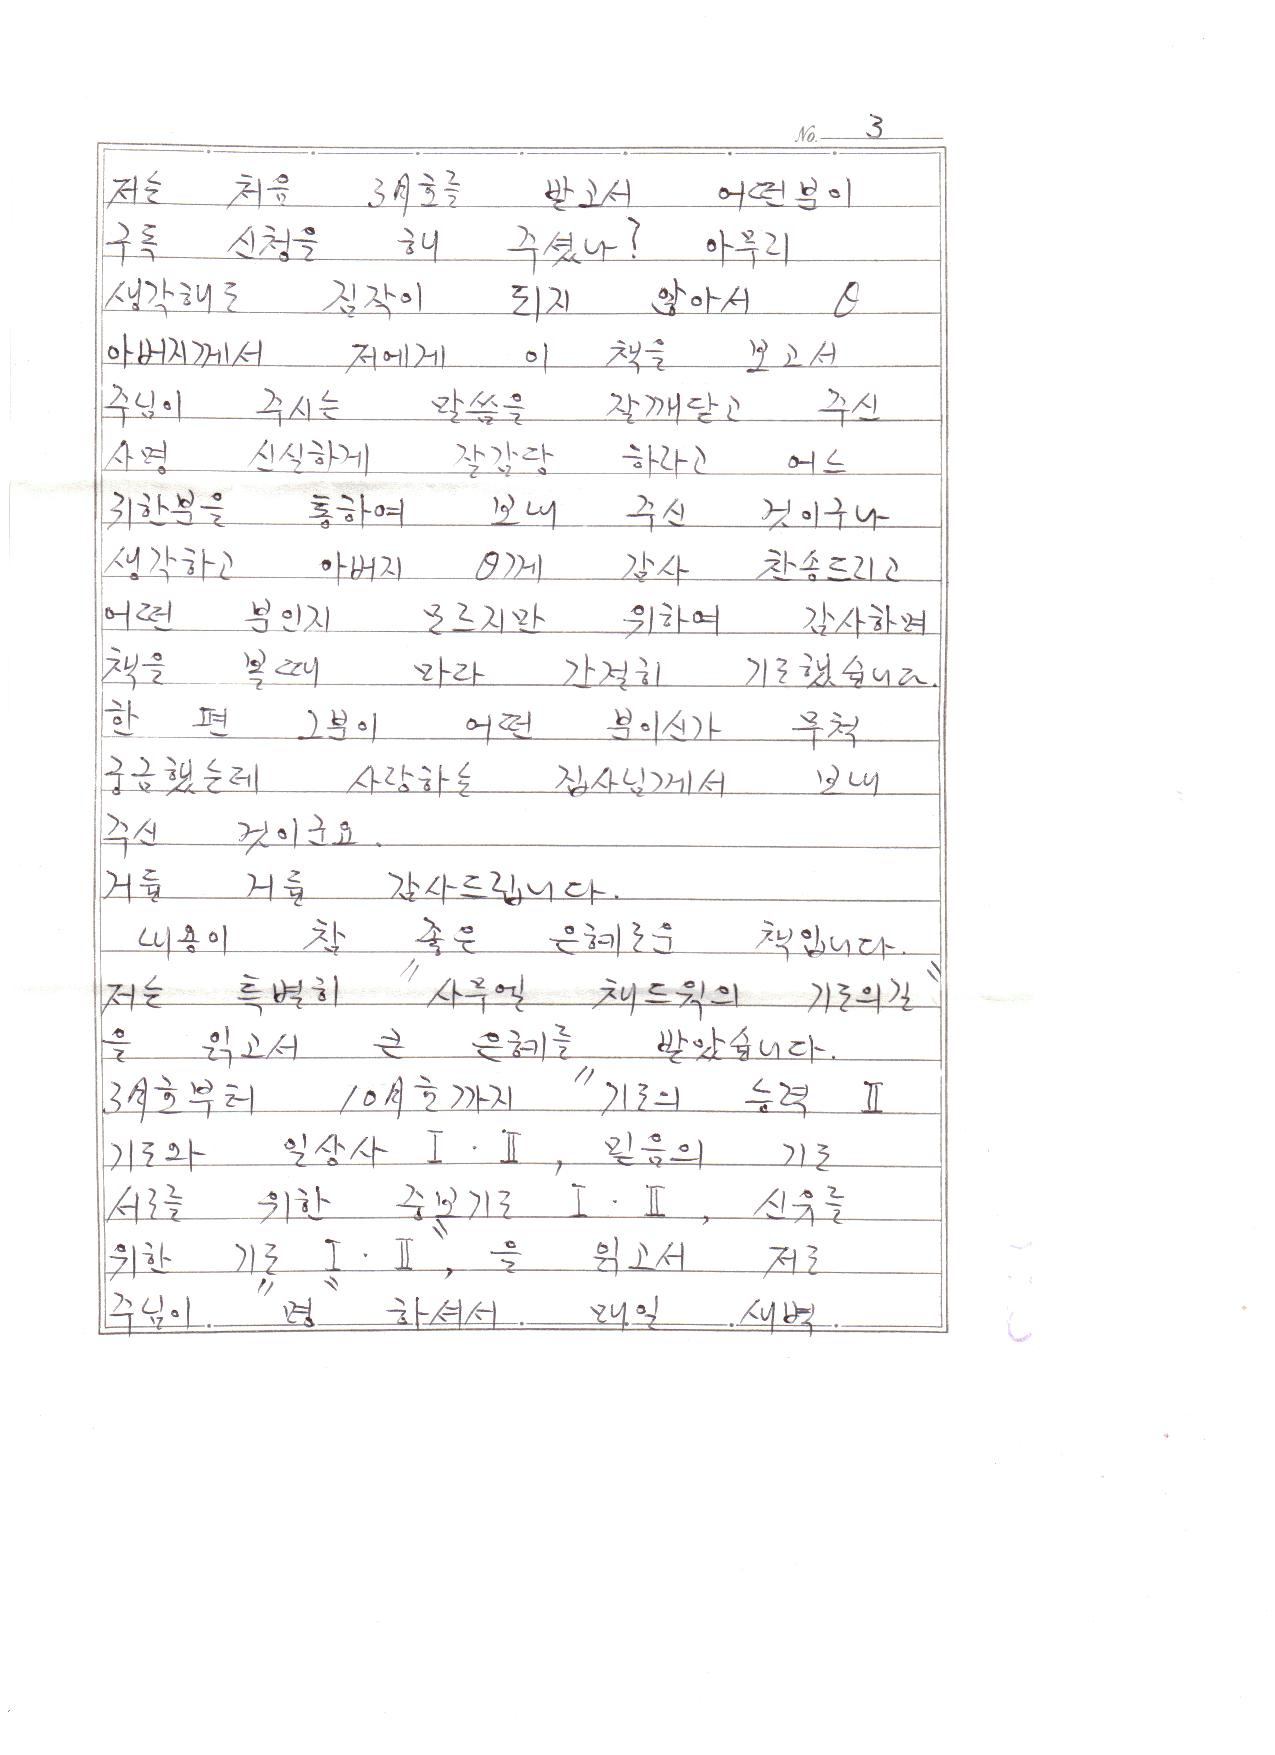 No. 3
저는 처음 3月호를 받고서 어떤분이
구독 신청을 해 주셨나? 아무리
생각해도 짐작이 되지 않아서 θ
아버지께서 저에게 이 책을 보고서
주님이 주시는 말씀을 잘깨닫고 주신
사명 신실하게 잘감당 하라고 어느
귀한분을 통하여 보내 주신 것이구나
생각하고 아버지 θ께 감사 찬송드리고
어떤 분인지 모르지만 위하여 감사하며
책을 볼때 마다 간절히 기도했습니다.
한 편 그분이 어떤 분이신가 무척
궁금했는데 사랑하는 집사님께서 보내
주신 것이군요.
거듭 거듭 감사드립니다.
내용이 참 좋은 은혜로운 책입니다.
저는 특별히 "사무엘 채드윅의 기도의길"
을 읽고서 큰 은혜를 받았습니다.
3月호부터 10月호까지 "기도의 능력 II
기도와 일상사 I·II, 믿음의 기도
서로를 위한 중보기도 I·II, 신유를
위한 기도 I·II", 을 읽고서 저도
주님이 "명" 하셔서 매일 새벽